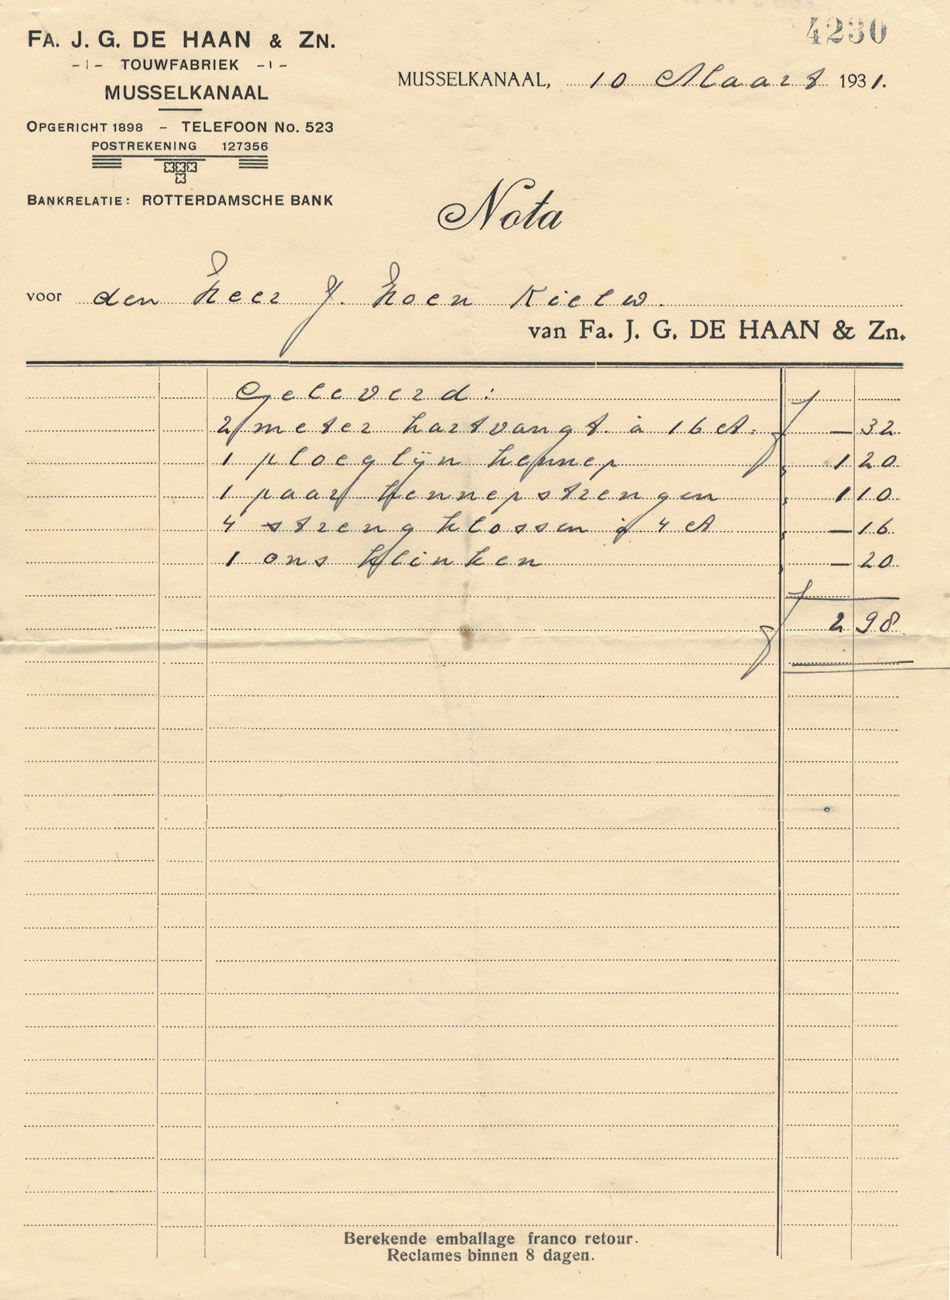 4230
FA. J. G. DE HAAN & ZN.
TOUWFABRIEK
MUSSELKANAAL
MUSSELKANAAL, 10 Maart 1931.
OPGERICHT 1898 - TELEFOON No. 523
POSTREKENING 127356
BANKRELATIE: ROTTERDAMSCHE BANK
Nota
voor den heer J. Koen Kielw.
van Fa. J. G. DE HAAN & Zn.
Geleverd:
2 meter hartvangt. à 16 ct. f — 32
1 ploeglijn hennep " 1 20
1 paar hennepstrengen " 1 10
4 strengklossen à 4 ct " — 16
1 ons klinken " — 20
f 2 98
Berekende emballage franco retour.
Reclames binnen 8 dagen.